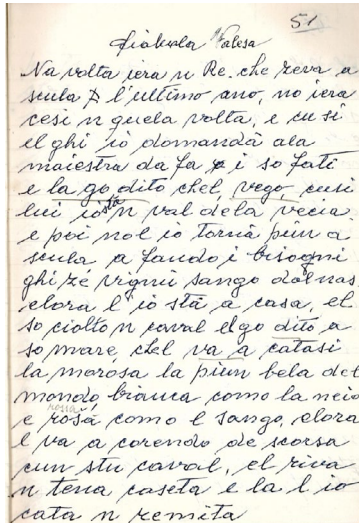 51
Fiabula Valesa
Na volta iera n Re. che zeva, a
scula l'ultimo ano, no iera
cesi n quela volta, e cu si
el ghi io domandà ala
maiestra da fa i so fati
e la go dito chel, vego, cusi
lui io sta n val dela vecia
e poi nol io tornà piun a
scula a faudo i bisogni
ghi zé vignù sango dal nas,
elora l' io stà a casa, el
so ciolto n caval el go dito, a
so mare, chel va a catasi
la morosa la piun bela del
mondo, bianca como la neio
e rosa como l sango, elora
l va a corendo de scorsa
cun stu caval, el riva
n tena caseta e la l io
cata n remita